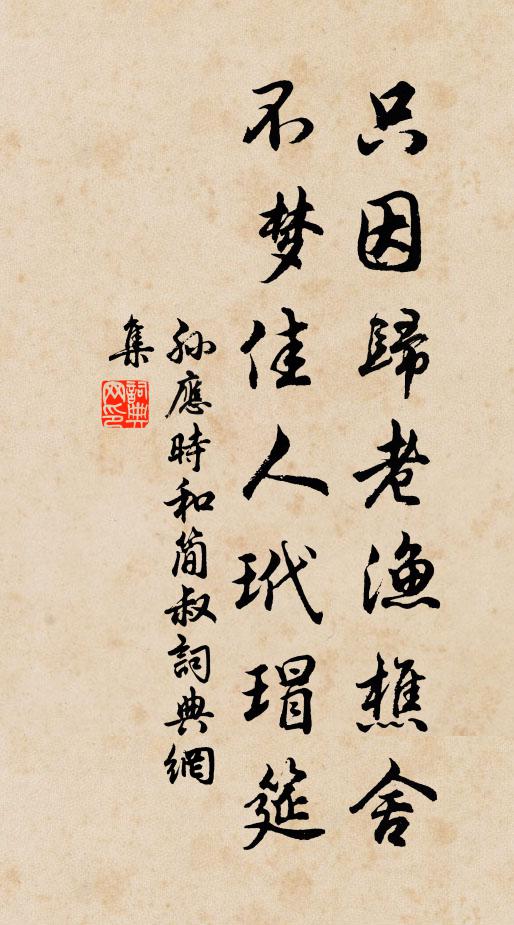 只因歸老漁樵舍
不梦佳人玳瑁筵
孙應時和简叔詞典網
集
詞典網印